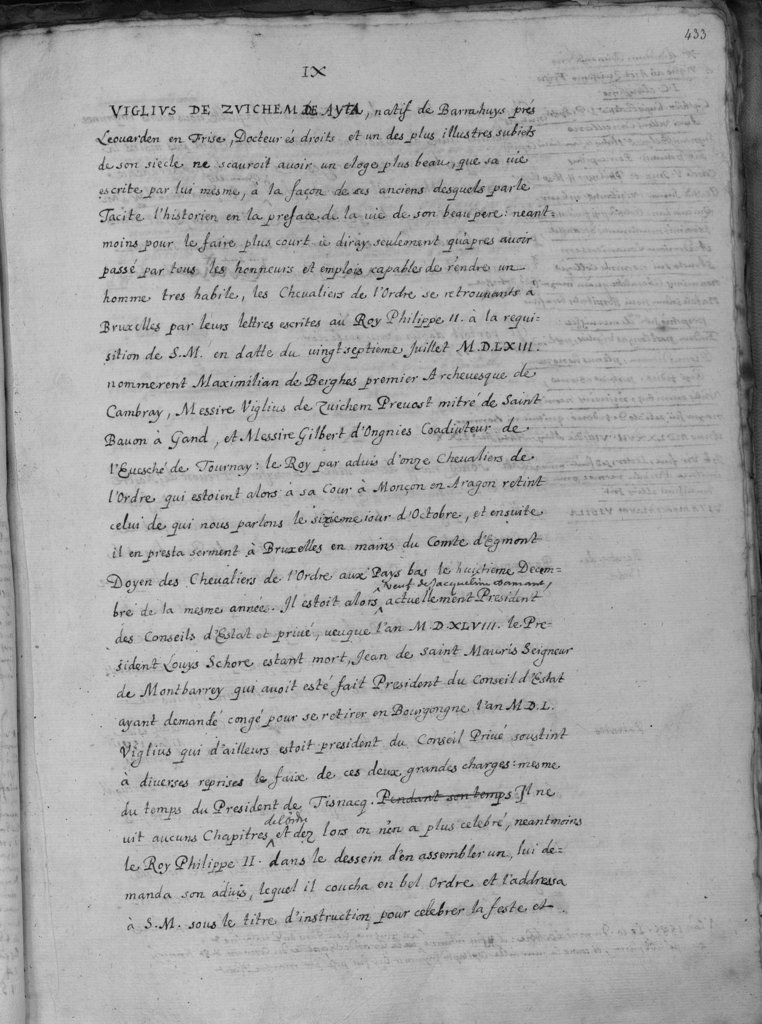 433
IX
VIGLIVS DE ZVICHEM DE AYTA, natif de Barrahuys prés
Leouarden en Frise, Docteur és droits et un des plus illustres subiets
de son siecle ne scauroit avoir un eloge plus beau, que sa vie
escrite par lui mesme, à la façon de ces anciens desquels parle
Tacite l'historien en la preface de la vie de son beaupere: neant-
moins pour le faire plus court ie diray seulement qu'apres avoir
passé par tous les honneurs et emplois capables de rendre un
homme tres habile, les Chevaliers de l'Ordre se retrouvants à
Bruxelles par leurs lettres escrites au Roy Philippe II. à la requi-
sition de S.M. en datte du vingtseptieme Juillet M.D.LXIII.
nommerent Maximilian de Berghes premier Archevesque de
Cambray, Messire Viglius de Zuichem Prevost mitré de Saint
Bavon à Gand, et Messire Gilbert d'Ongnies Coadiuteur de
l'Evesché de Tournay: le Roy par advis d'onze Chevaliers de
l'Ordre qui estoient alors à sa Cour à Monçon en Aragon retint
celui de qui nous parlons le sixieme iour d'Octobre, et ensuite
il en presta serment à Bruxelles en mains du Comte d'Egmont
Doyen des Chevaliers de l'Ordre aux Pays bas le huictieme Decem-
veuf de Jacqueline Damant,
bre de la mesme année. Il estoit alors actuellement President
des Conseils d'Estat et privé, veuque l'an M.D.XLVIII. le Pre-
sident Louys Schore estant mort, Jean de saint Mauris Seigneur
de Montbarrey qui avoit esté fait President du Conseil d'Estat
ayant demandé congé pour se retirer en Bourgongne l'an M.D.L.
Viglius qui d'ailleurs estoit president du Conseil Privé soustint
à diverses reprises le faix de ces deux grandes charges: mesme
du temps du President de Tisnacq. Pendant son temps Il ne
de l'ordre
vit aucuns Chapitres et dez lors on n'en a plus celebré, neantmoins
le Roy Philippe II. dans le dessein d'en assembler un, lui de-
manda son advis, lequel il coucha en bel Ordre et l'addressa
à S.M. sous le titre d'instruction pour celebrer la feste et